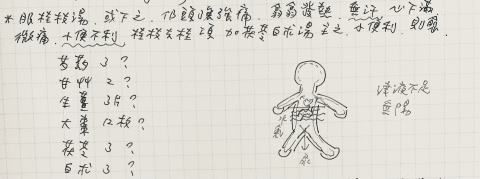 *服桂枝湯,或下之,仍頭項強痛,翕翕發熱,無汗,心下滿
微痛,小便不利,桂枝去桂 加茯苓白朮湯主之,小便利,則愈
芍藥 3?
甘艸 2?
生薑 3片?
大棗 12枚?
茯苓 3?
白朮 3?
津液不足